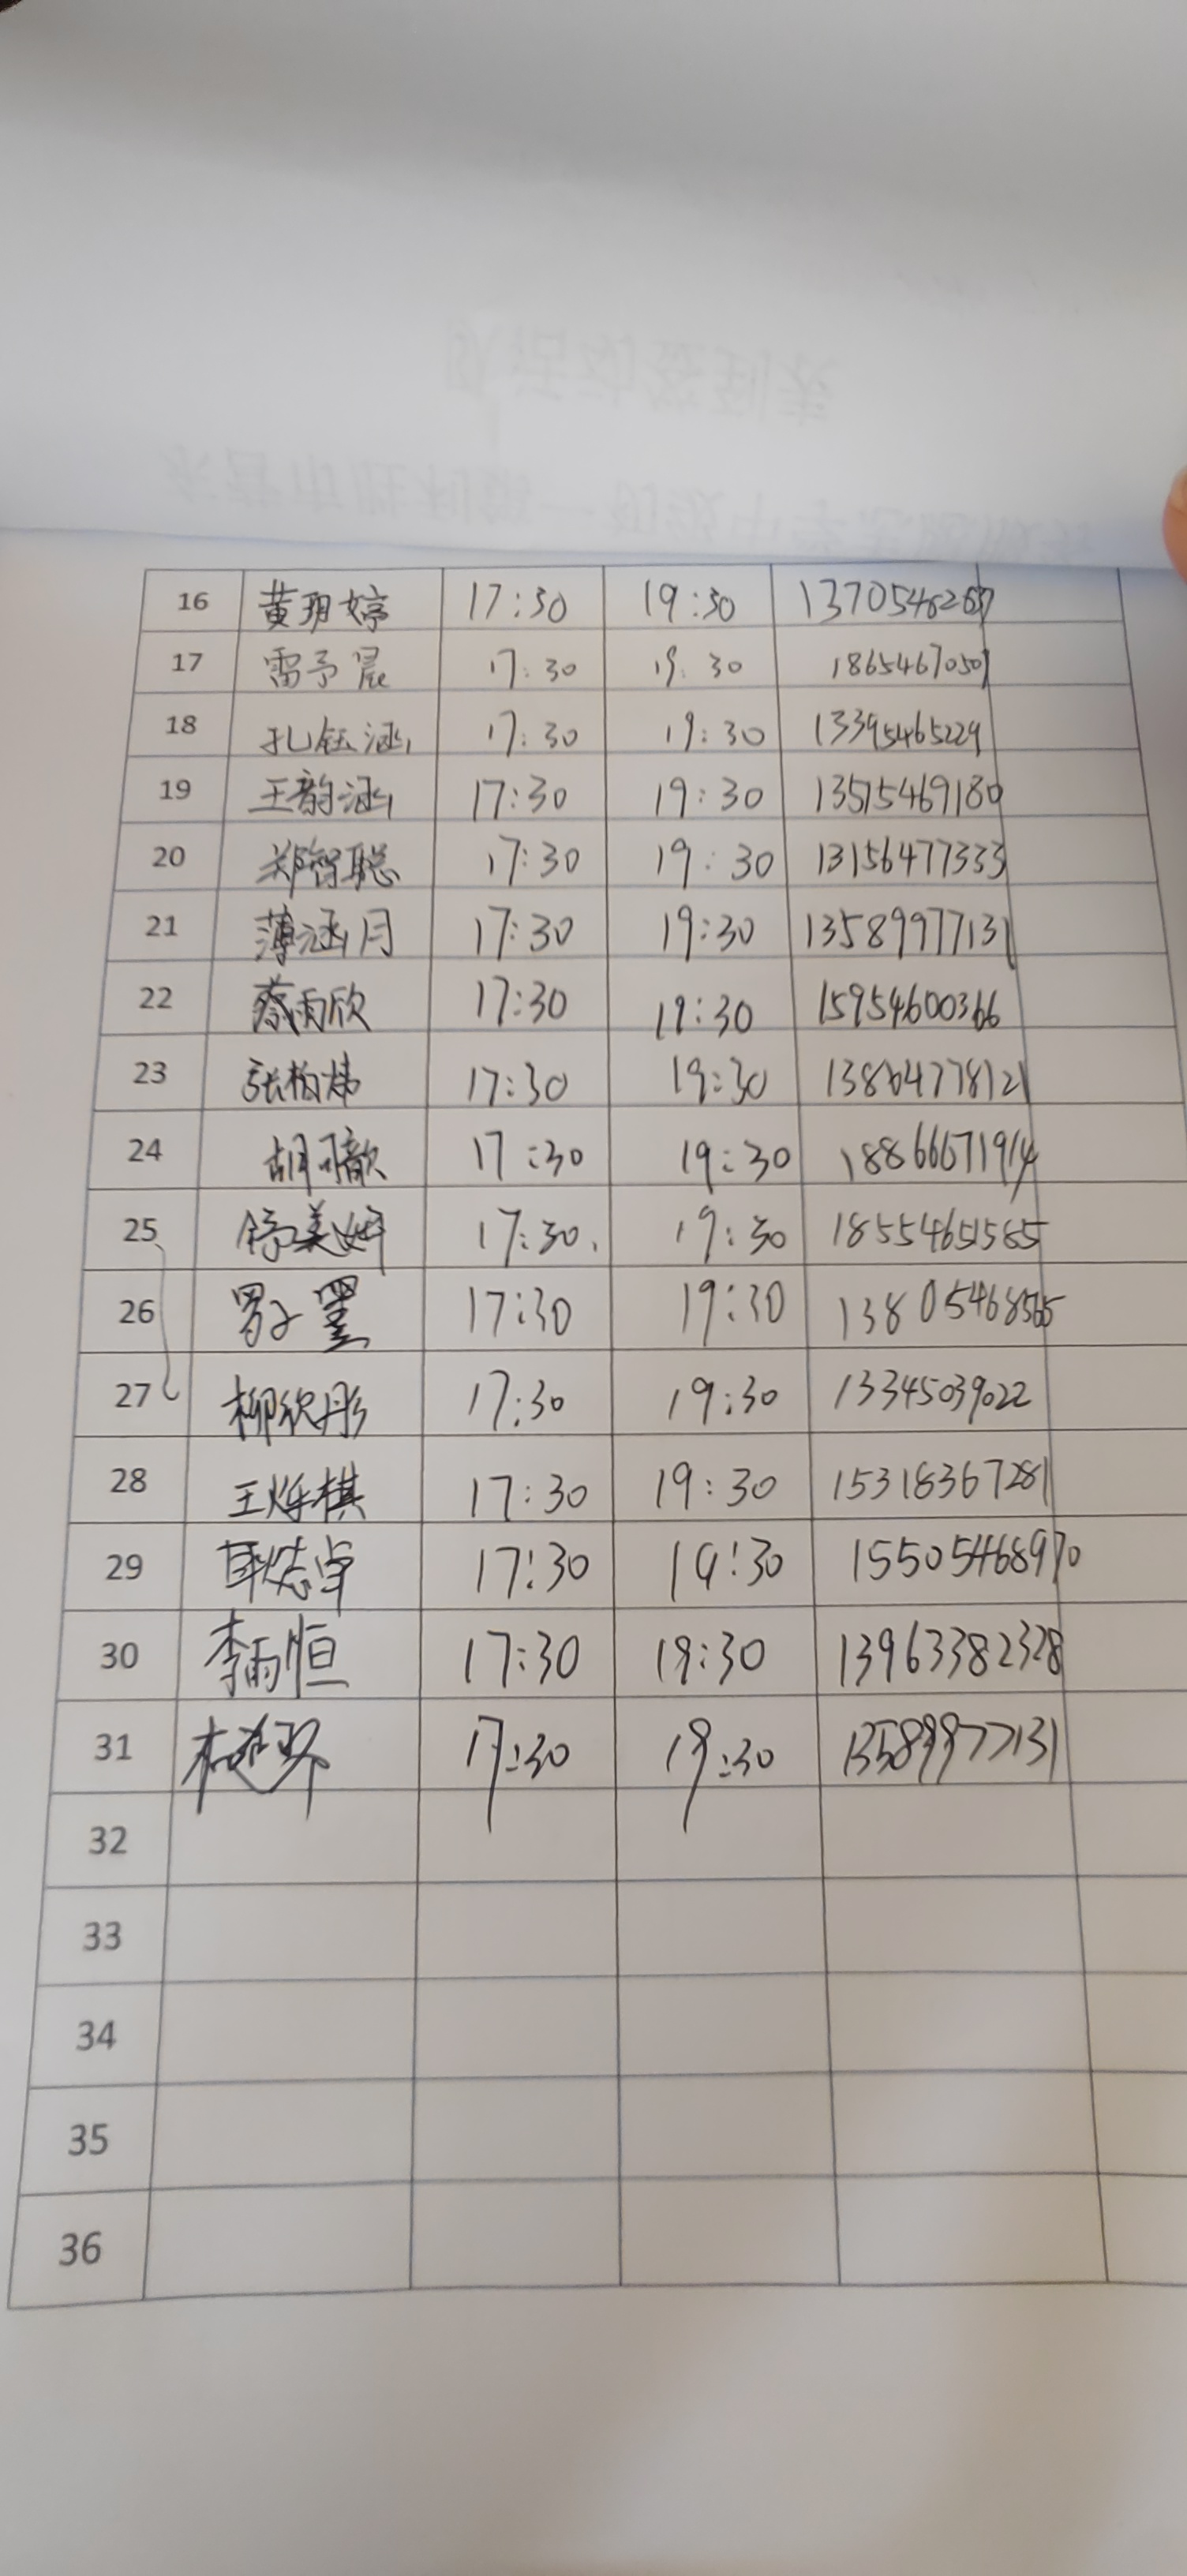 16 黄玥婷 17:30 19:30
17 雷予晨 17:30 19:30 18654670501
18 孔钰涵 17:30 19:30 13395465229
19 王韵涵 17:30 19:30 13515469180
20 郑智聪 17:30 19:30 13156477333
21 薄涵月 17:30 19:30 13589977131
22 蔡雨欣 17:30 19:30 15954600366
23 张柏炜 17:30 19:30 13864778121
24 胡可歆 17:30 19:30 18866671914
25 17:30 19:30 18554651565
26 17:30 19:30 13805468565
27 柳欣彤 17:30 19:30 13345039022
28 王烁棋 17:30 19:30 15318367281
29 17:30 19:30 15505468970
30 李雨恒 17:30 19:30 13963382328
31 17:30 19:30 13589977131
32
33
34
35
36